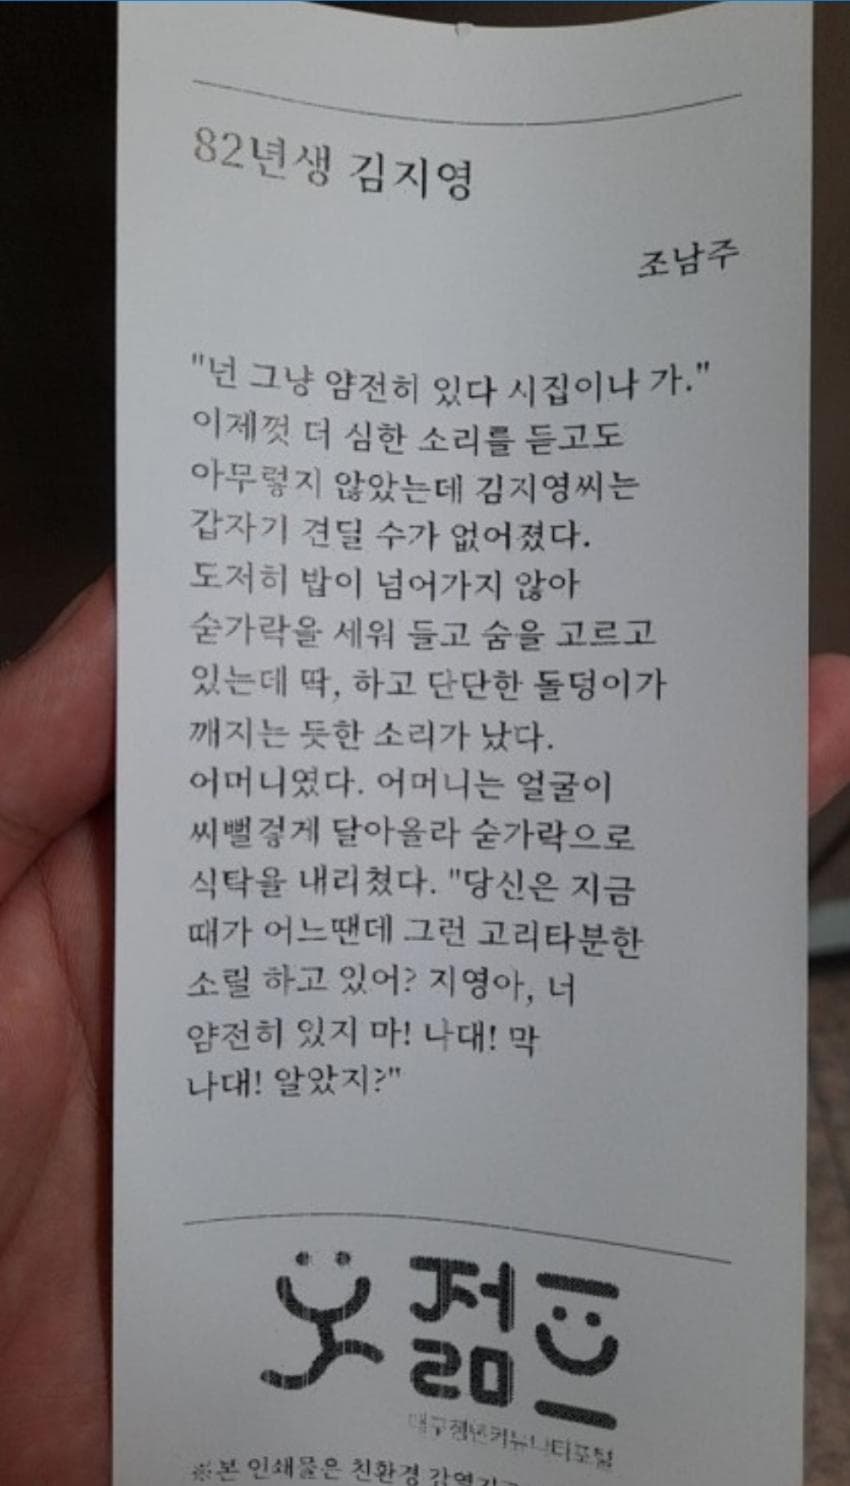 82년생 김지영
조남주
"넌 그냥 얌전히 있다 시집이나 가."
이제껏 더 심한 소리를 듣고도
아무렇지 않았는데 김지영씨는
갑자기 견딜 수가 없어졌다.
도저히 밥이 넘어가지 않아
숟가락을 세워 들고 숨을 고르고
있는데 딱, 하고 단단한 돌덩이가
깨지는 듯한 소리가 났다.
어머니였다. 어머니는 얼굴이
씨뻘겋게 달아올라 숟가락으로
식탁을 내리쳤다. "당신은 지금
때가 어느땐데 그런 고리타분한
소릴 하고 있어? 지영아, 너
얌전히 있지 마! 나대! 막
나대! 알았지?"
젊프
대구청년커뮤니티포털
※본 인쇄물은 친환경